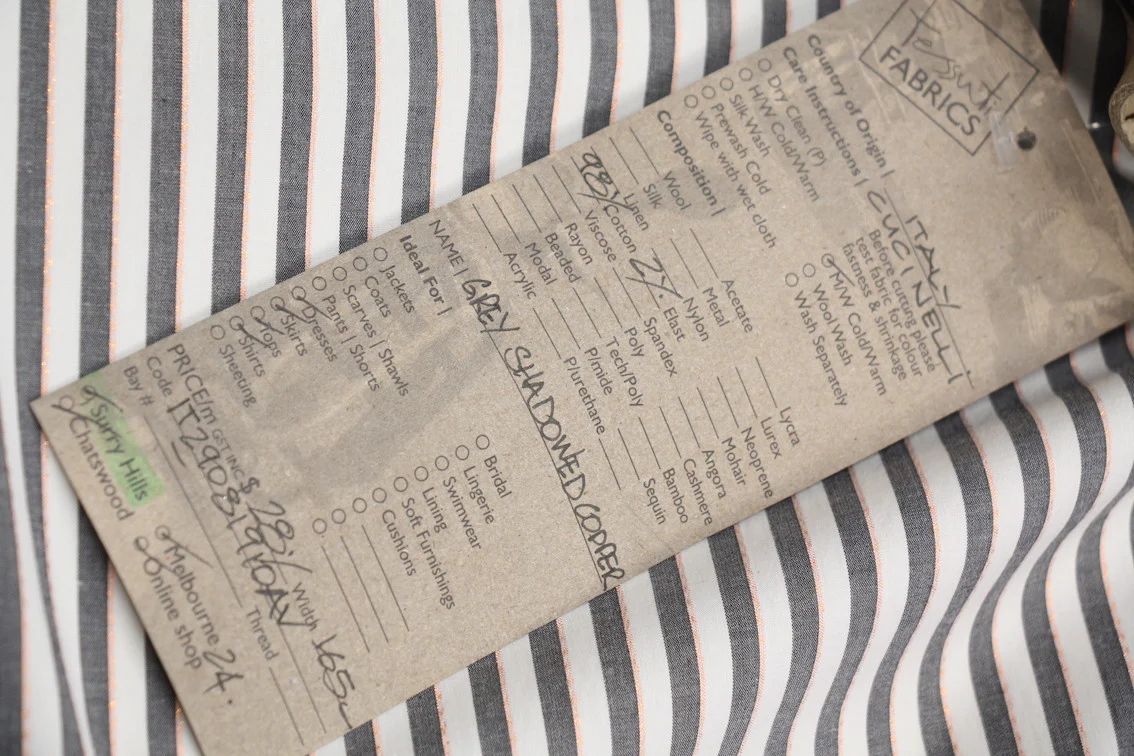 Tessuti
FABRICS
Country of Origin | ITALY
Care Instructions | CUCINELLI
Dry Clean (P)
H/W Cold/Warm
Silk Wash
Prewash Cold
Wipe with wet cloth
Before cutting please
test fabric for colour
fastness & shrinkage
M/W Cold/Warm
Wool Wash
Wash Separately
Composition |
Wool
Silk
Linen
98% Cotton
Viscose
Rayon
Beaded
Modal
Acrylic
Acetate
Metal
Nylon
2% Elast
Spandex
Poly
Tech/Poly
P/mide
P/urethane
Lycra
Lurex
Neoprene
Mohair
Angora
Cashmere
Bamboo
Sequin
NAME | GREY SHADOWED COPPER
Ideal For |
Jackets
Coats
Scarves | Shawls
Pants | Shorts
Dresses
Skirts
Tops
Shirts
Sheeting
Bridal
Lingerie
Swimwear
Lining
Soft Furnishings
Cushions
PRICE/m GST INC $ 28/ Width 165
Code Thread
Bay #
Surry Hills
Chatswood
Melbourne 24.
Online shop